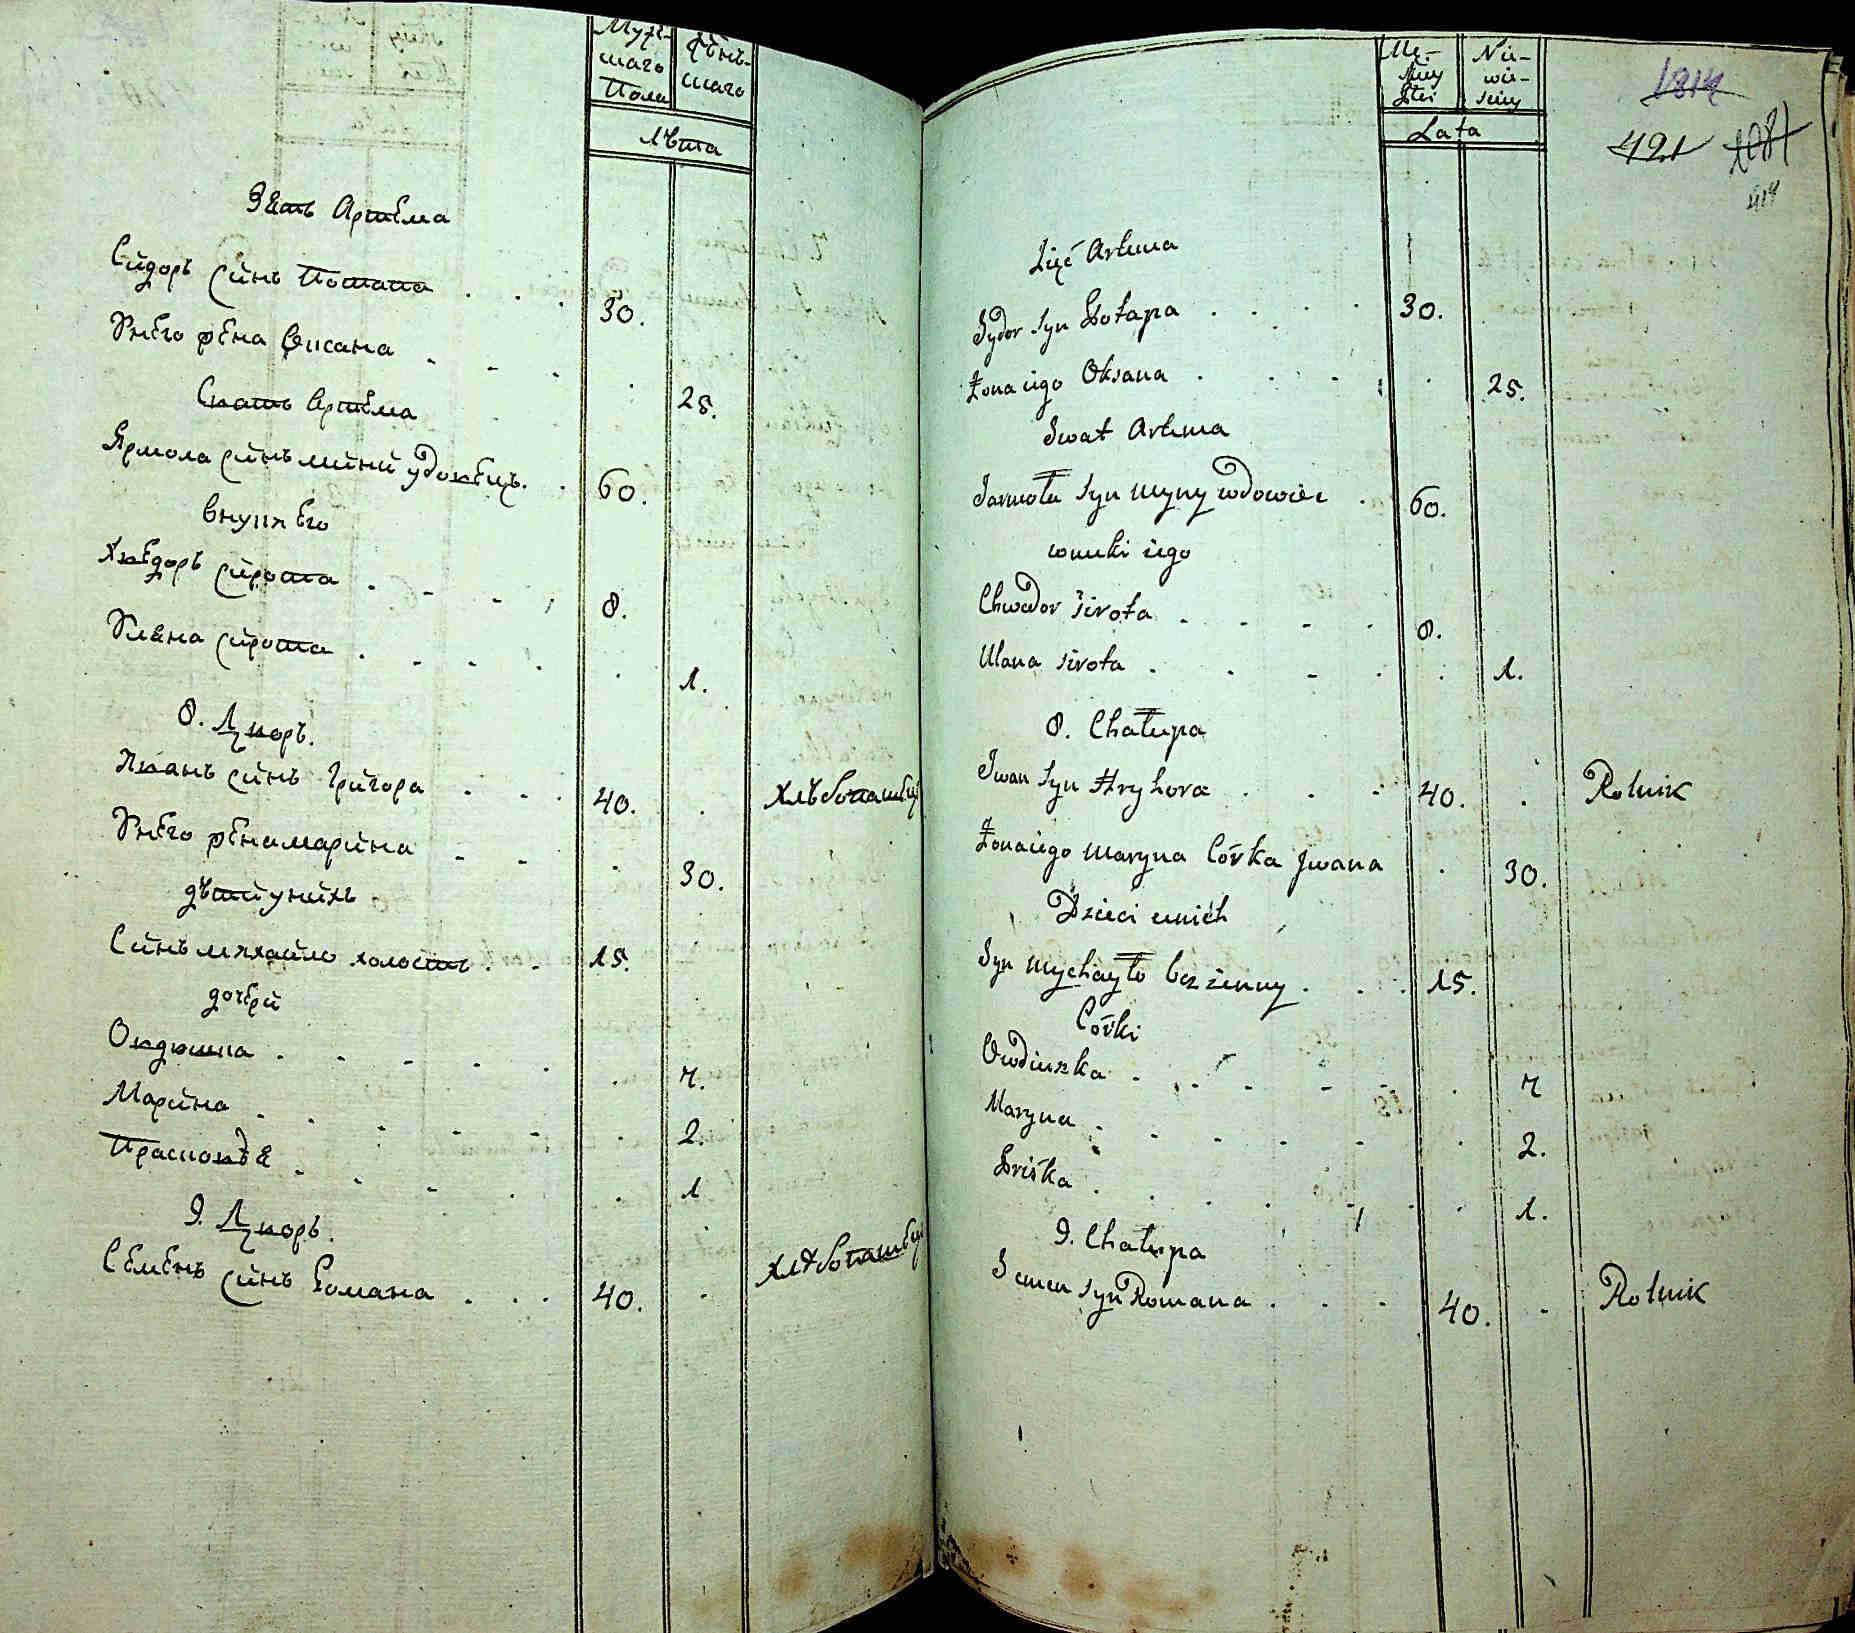 Муже-
скаго
Пола
Женъ-
скаго
Лѣта
Зять Артема
Сидоръ синъ Потапа . . . 30.
У него жена Оксана . . . 25.
Сватъ Артема
Ярмола синъ мини удовецъ . . 60.
внуки его
Хведоръ сирота . . . 8.
Уляна сирота . . . . 1.
8. Дворъ.
Иванъ синъ Григора . . . 40. Хлѣбопашецъ
У него жена марина . . . 30.
дѣти у нихъ
Синъ михайло холостъ . . 15.
дочери
Овдюшка . . . . . 7.
Марина . . . . . 2.
Прасковья . . . . 1
9. Дворъ.
Семенъ синъ Романа . . . 40. Хлѣбопашецъ
Mę-
skiey
Płci
Nie-
wie-
sciey
Lata
1814
421
1087
414
Zięć Artema
Sydor syn Potapa . . . . 30.
Żona iego Oksana . . . . 25.
Swat Artema
Jarmoła syn Myny wdowiec . 60.
wnuki iego
Chwedor sirota . . . . 8.
Ulana sirota . . . . 1.
8. Chałupa
Iwan syn Hryhora . . . 40. Rolnik
Żona iego Maryna Córka Jwana . 30.
Dzieci u nich
Syn Mychayło bezżenny . . . 15.
Córki
Owdiuszka . . . . . 7
Maryna . . . . . 2.
Priśka . . . . . 1.
9. Chałupa
Semen syn Romana . . . 40. Rolnik